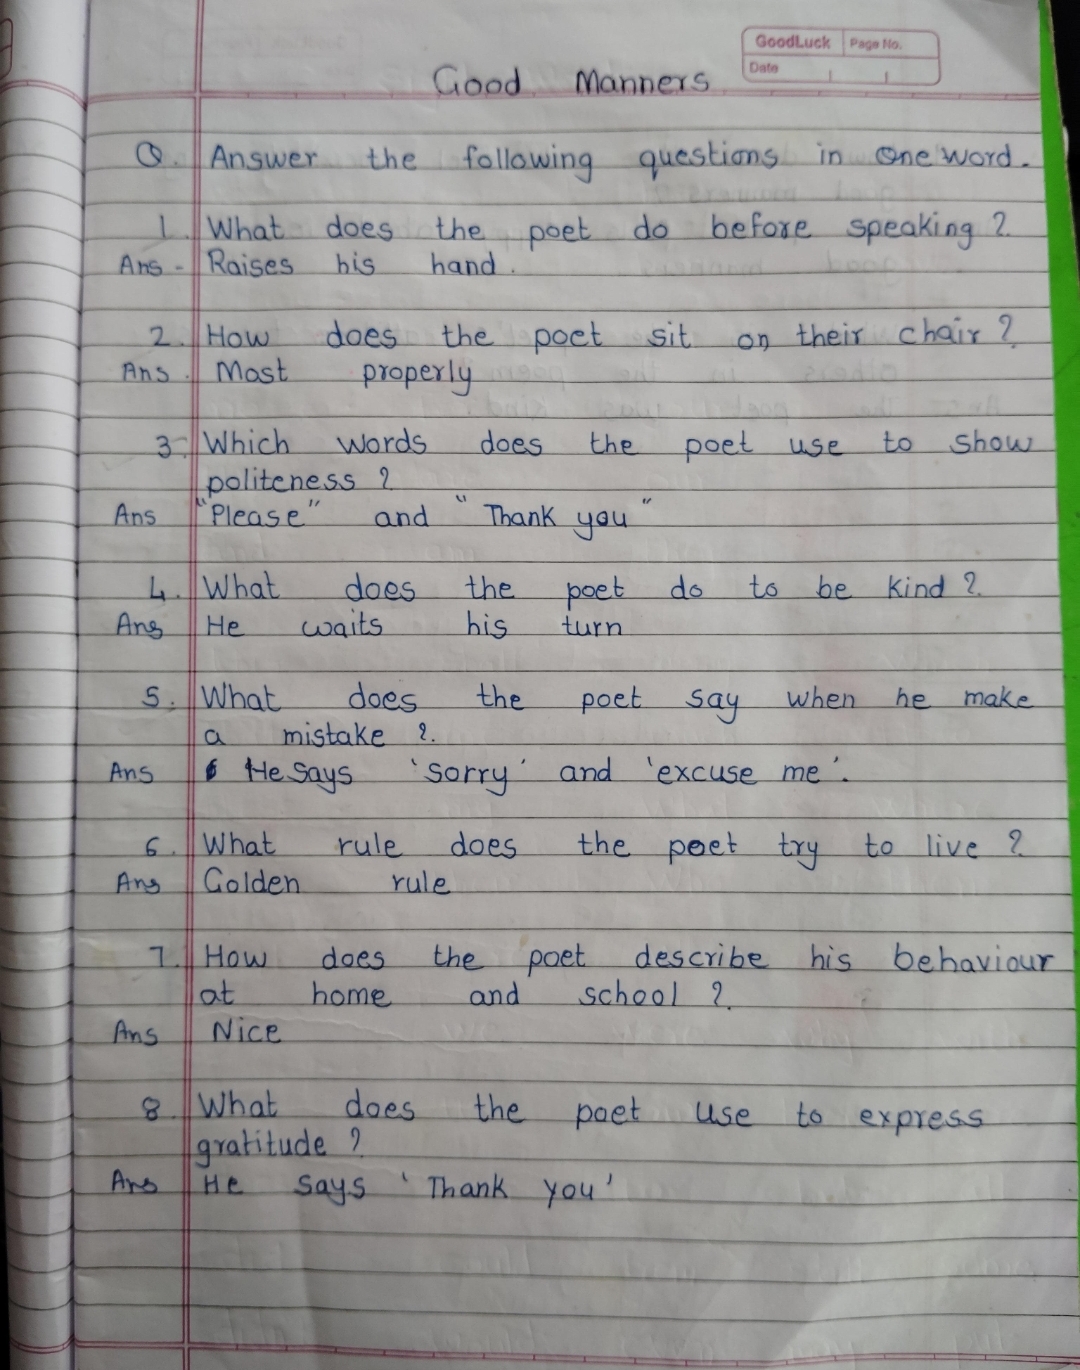 GoodLuck Page No.
Date
Good Manners
Q. Answer the following questions in one word.
1. What does the poet do before speaking ?
Ans - Raises his hand.
2. How does the poet sit on their chair ?
Ans. Most properly
3. Which words does the poet use to show
politeness ?
Ans "Please" and "Thank you"
4. What does the poet do to be kind ?
Ans He waits his turn
5. What does the poet say when he make
a mistake ?
Ans He says 'sorry' and 'excuse me'.
6. What rule does the poet try to live ?
Ans Golden rule
7. How does the poet describe his behaviour
at home and school ?
Ans Nice
8. What does the poet use to express
gratitude ?
Ans He says 'Thank you'